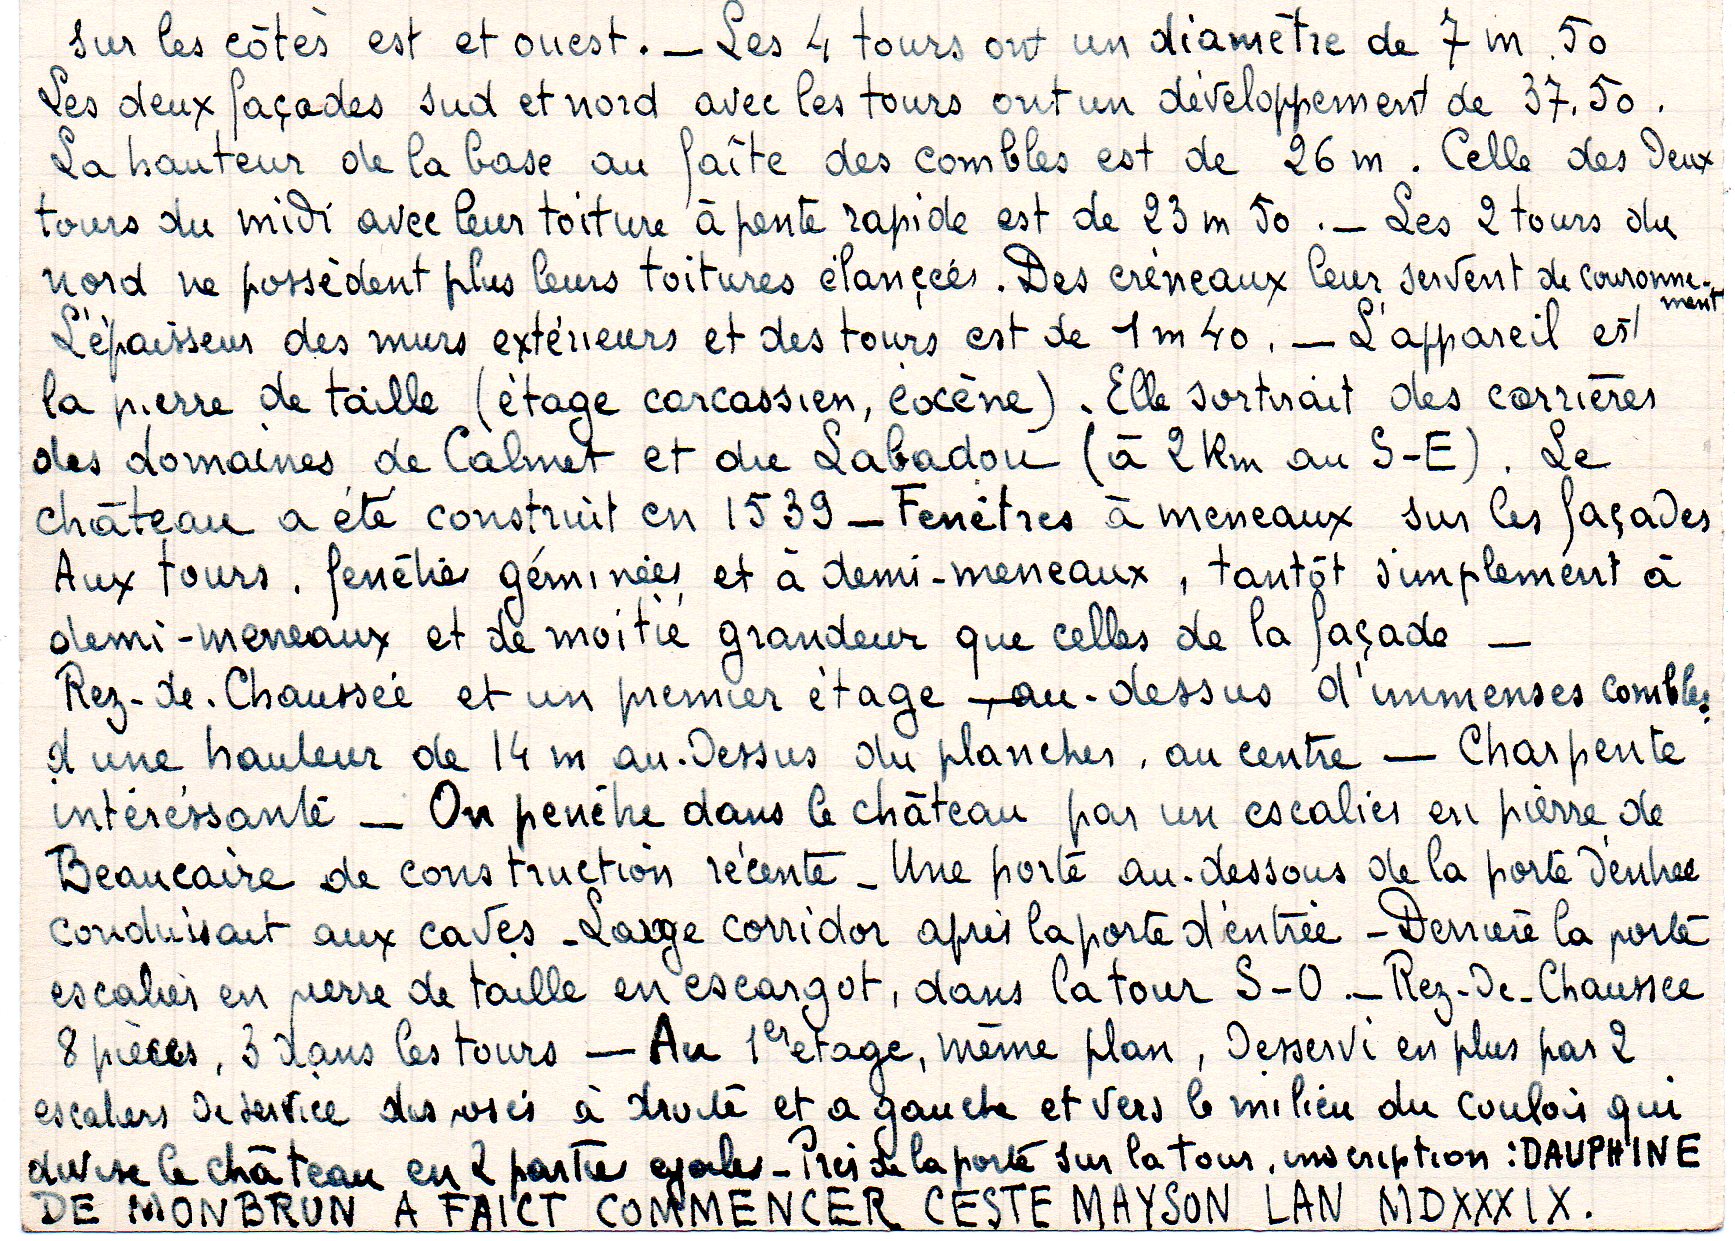 sur les côtés est et ouest. — Les 4 tours ont un diamètre de 7 m. 50
Les deux façades sud et nord avec les tours ont un développement de 37.50.
La hauteur de la base au faîte des combles est de 26 m. Celle des deux
tours du midi avec leur toiture à pente rapide est de 23 m 50. — Les 2 tours du
nord ne possèdent plus leurs toitures élancées. Des créneaux leur servent de couronne-
ment
L'épaisseur des murs extérieurs et des tours est de 1 m 40. — L'appareil est
la pierre de taille (étage carcassien, éocène). Elle sortirait des carrières
des domaines de Calmet et du Labadou (à 2 Km au S-E). Le
château a été construit en 1539 — Fenêtres à meneaux sur les façades
Aux tours, fenêtres géminées et à demi-meneaux, tantôt simplement à
demi-meneaux et de moitié grandeur que celles de la façade —
Rez-de-Chaussée et un premier étage — au-dessus d'immenses combles
d'une hauteur de 14 m au-dessus du plancher, au centre — Charpente
intéréssante — On penêtre dans le château par un escalier en pierre de
Beaucaire de construction récente — Une porte au-dessous de la porte d'entrée
conduisait aux caves — Large corridor après la porte d'entrée — Derrière la porte
escalier en pierre de taille en escargot, dans la tour S-O. — Rez-de-Chaussee
8 pièces, 3 dans les tours — Au 1er etage, même plan, desservi en plus par 2
escaliers de service disposés à droite et a gauche et vers le milieu du couloir qui
divise le château en 2 parties egales — Près de la porte sur la tour, inscription : DAUPHINE
DE MONBRUN A FAICT COMMENCER CESTE MAYSON LAN MDXXXIX.